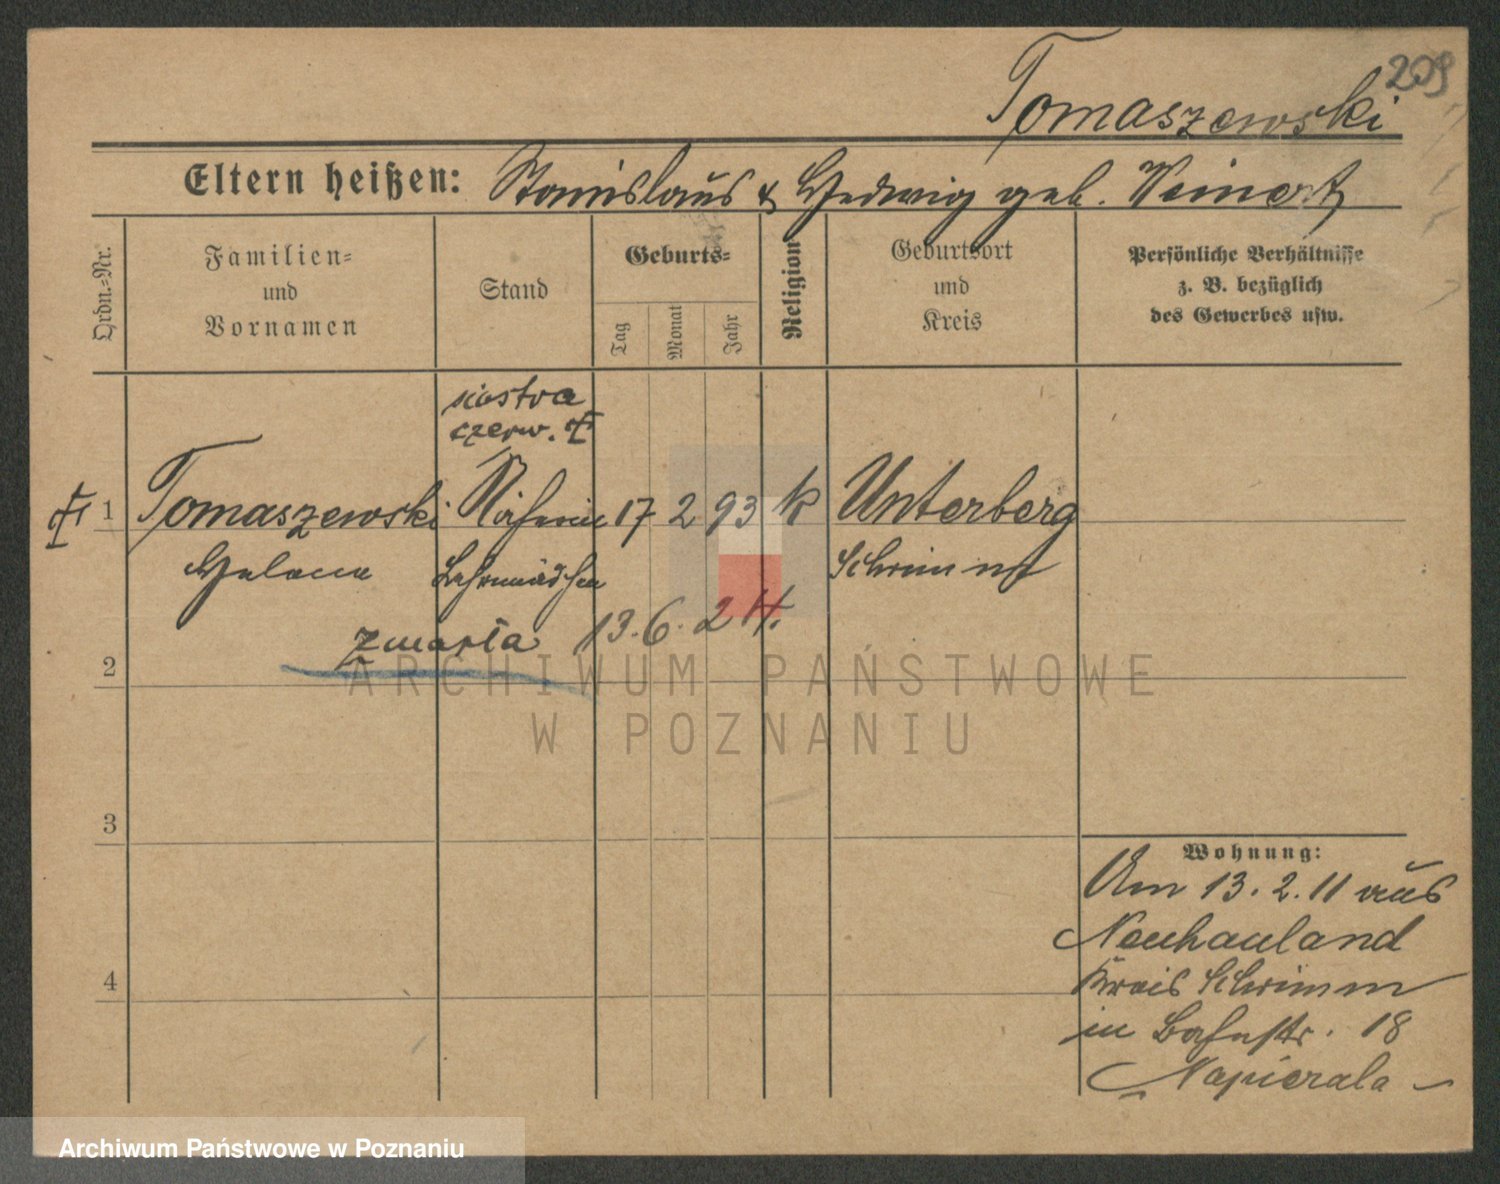 209
Tomaszewski
Eltern heißen: Stanislaus & Hedwig geb. Weinert
Ordn.-Nr.
Familien-
und
Vornamen
Stand
Geburts-
Tag
Monat
Jahr
Religion
Geburtsort
und
Kreis
Persönliche Verhältnisse
z. B. bezüglich
des Gewerbes usw.
siostra
czerw. +
1 Tomaszewski Näherin 17 2 93 k Unterberg
Helena Lehrmädchen Schrimm
zmarła 13. 6. 24.
2
3
4
Wohnung:
Am 13. 2. 11 aus
Neuhauland
Kreis Schrimm
in Bahnstr. 18
Napierala
ARCHIWUM PAŃSTWOWE
W POZNANIU
Archiwum Państwowe w Poznaniu